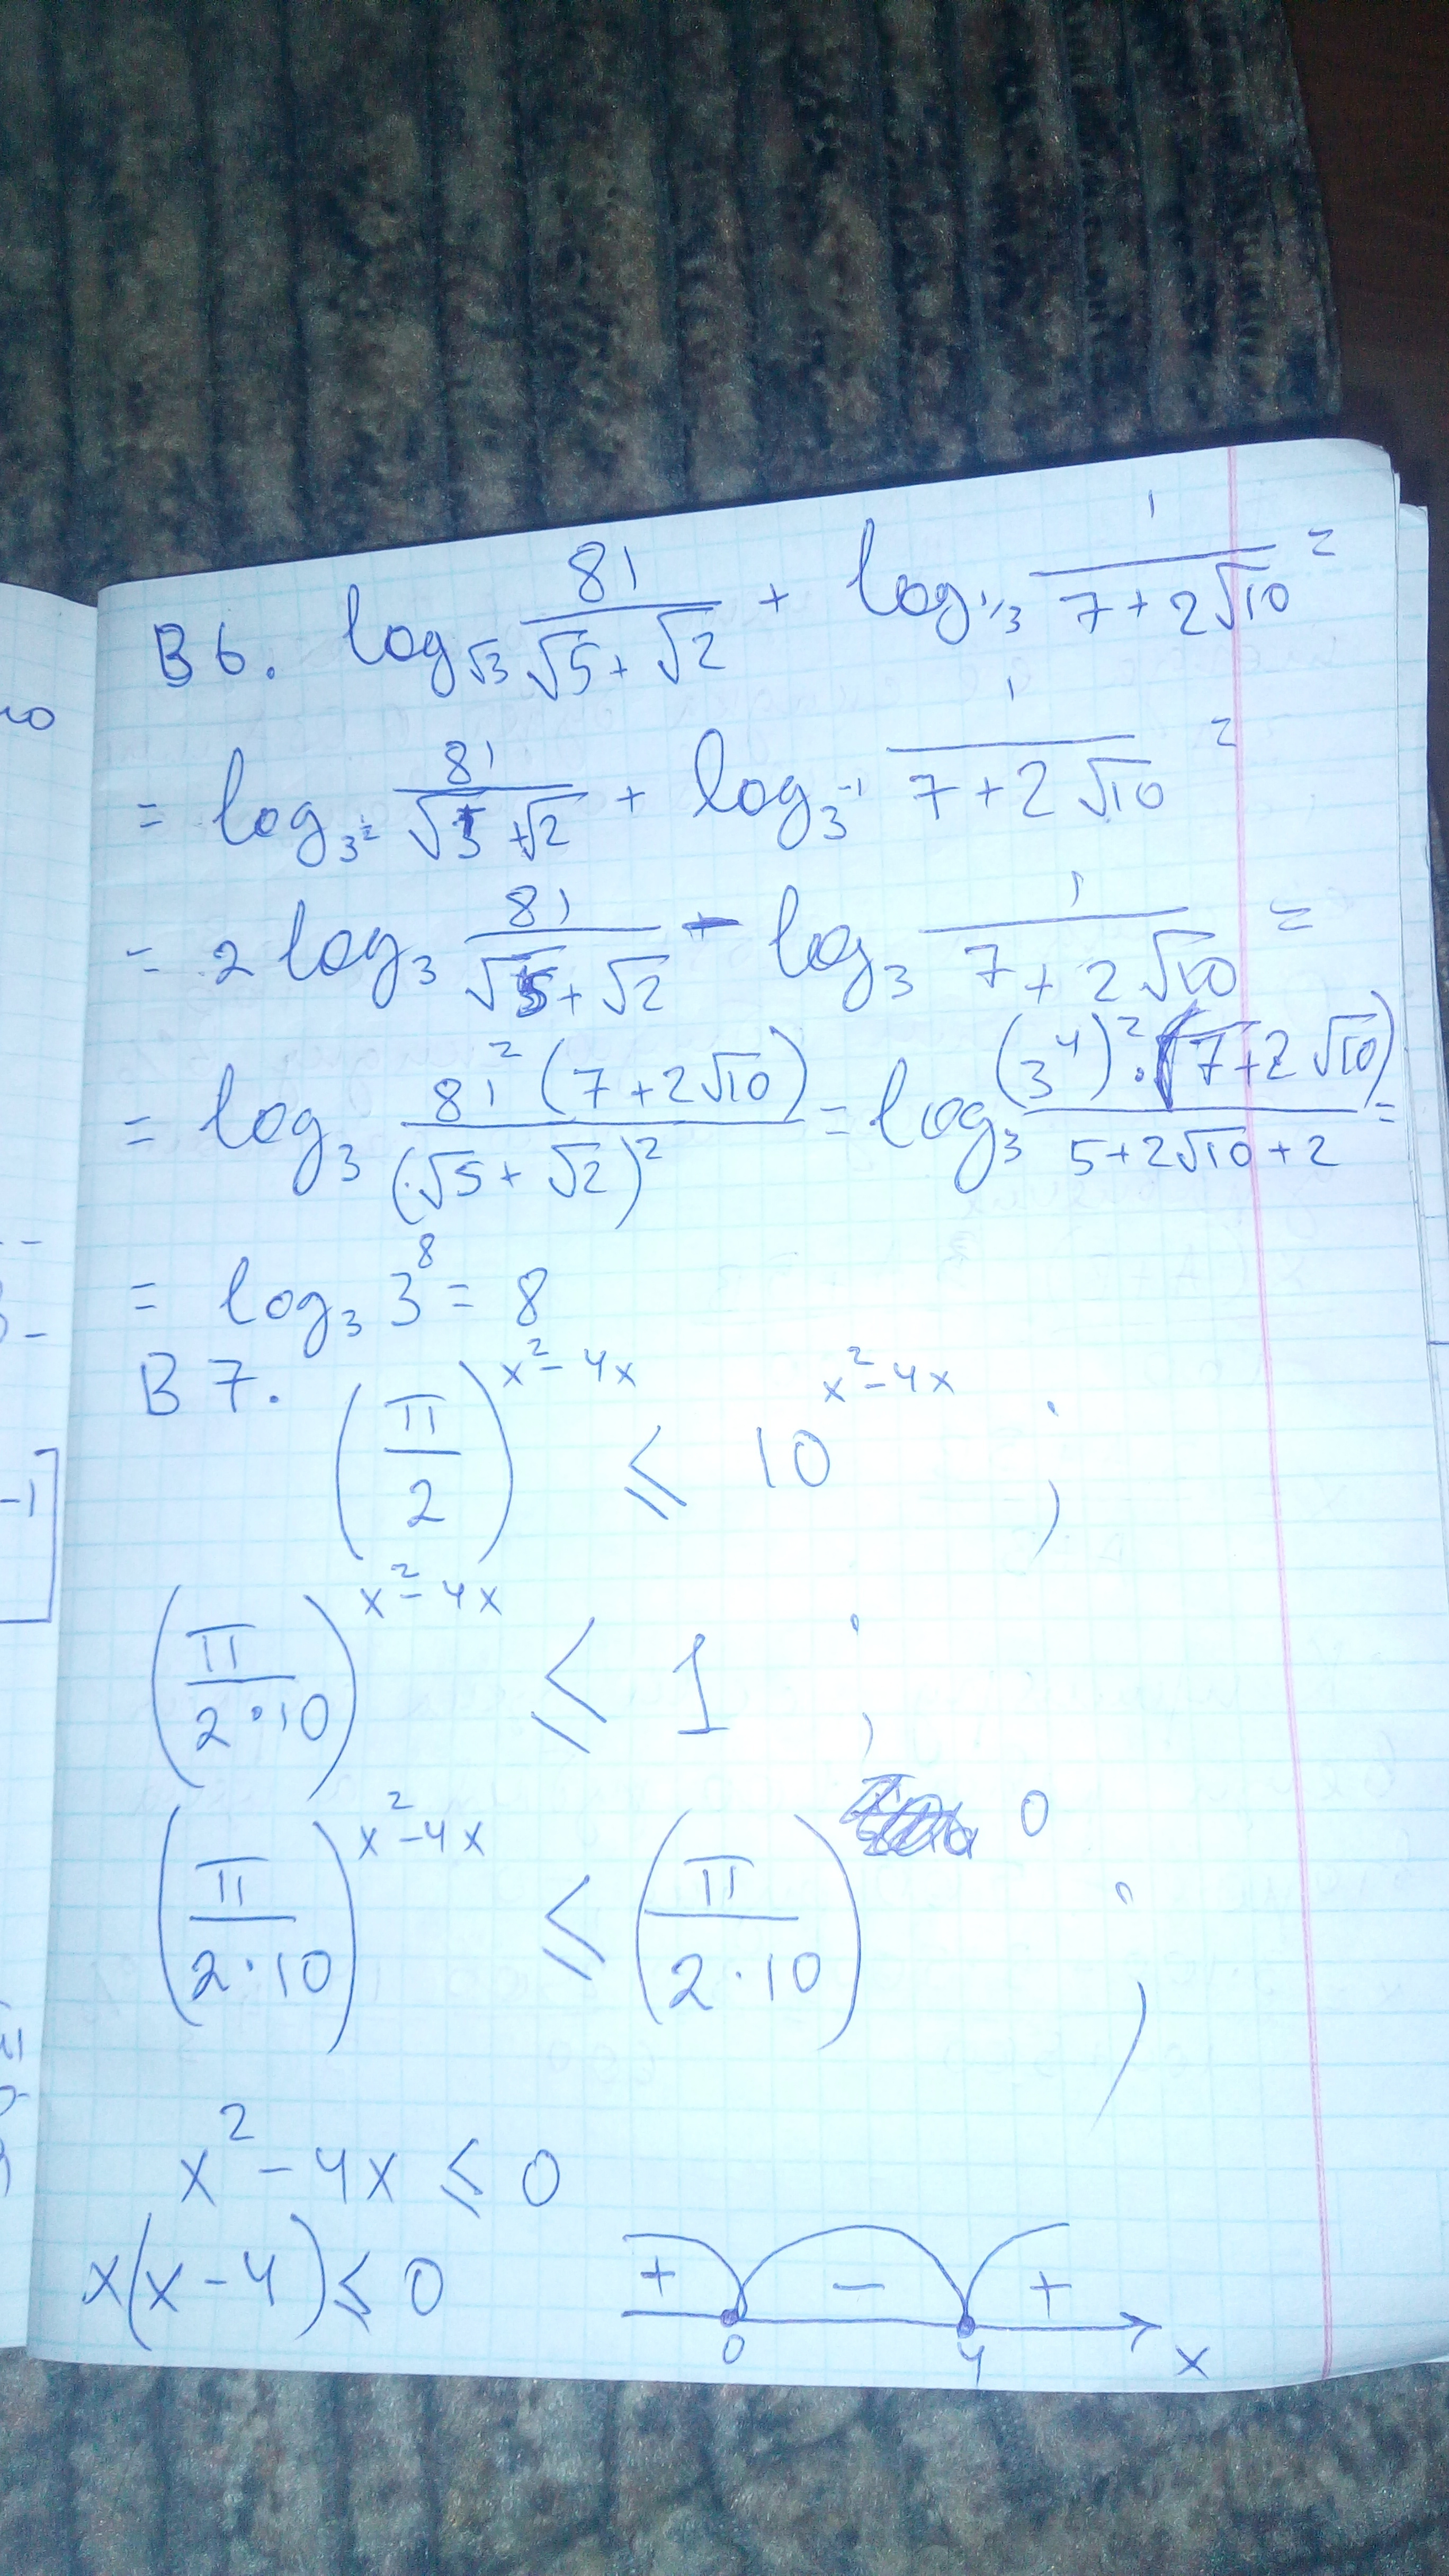 B 6. log_√3 81/(√5+√2) + log_1/3 1/(7+2√10) =
= log_3^½ 81/(√5+√2) + log_3^-1 1/(7+2√10) =
= 2 log_3 81/(√5+√2) - log_3 1/(7+2√10) =
= log_3 81²(7+2√10)/(√5+√2)² = log_3 (3⁴)²·(7+2√10)/(5+2√10+2) =
= log_3 3⁸ = 8
B 7. (π/2)^(x²-4x) ≤ 10^(x²-4x) ;
(π/(2·10))^(x²-4x) ≤ 1 ;
(π/(2·10))^(x²-4x) ≤ (π/(2·10))^0 ;
x² - 4x ≤ 0
x(x-4) ≤ 0
+ - +
0 4 x